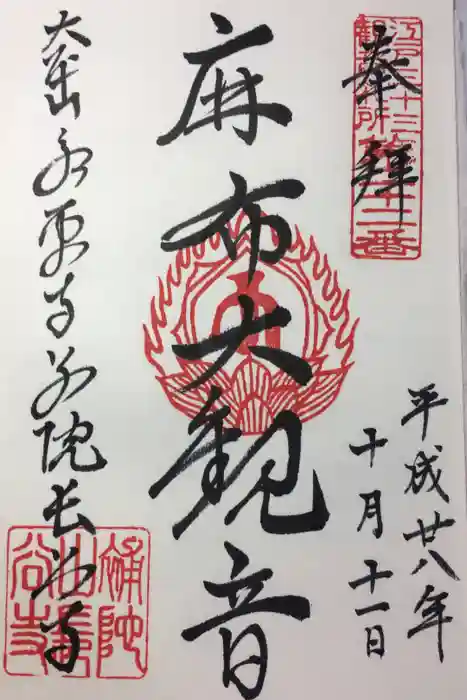 奉拝
江戸三十三
観音札所
第二十二番
平成廿八年
十月十一日
麻布大観音
大本山永平寺別院長谷寺
補陀山長谷寺